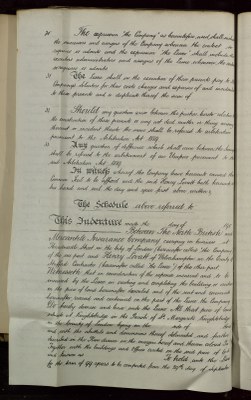 The expression "the Company" as hereinbefore used shall include
the successors and assigns of the Company wherever the context so
requires or admits and the expression "the Lessee" shall include his
executors administrators and assigns of the Lessee wherever the context
so requires or admits
The Lessee shall on the execution of these presents pay to the
Company's Solicitor for their costs charges and expenses of and incidental
to these presents and a duplicate thereof the sum of
Should any question arise between the parties hereto relating to
the construction of these presents or any act deed matter or thing
herein or incident thereto the same shall be referred to arbitration
pursuant to the Arbitration Act 1889
Any question of difference which shall arise between the
shall be referred to the arbitrament of an Umpire pursuant to the
said Arbitration Act 1889
In witness whereof the Company have hereunto caused their
Common Seal to be affixed and the said Henry Lovatt hath hereunto set
his hand and seal the day and year first above written
The Schedule above referred to
This Indenture made the day of
Between The North British and
Mercantile Insurance Company carrying on business at
Threadneedle Street in the City of London (hereinafter called "the Company")
of the one part and Henry Lovatt of Wolverhampton in the County of
Stafford Contractor (hereinafter called "the Lessee") of the other part
Witnesseth that in consideration of the expense incurred and to be
incurred by the Lessee in erecting and completing the building or
on the piece of land hereinafter described and of the rent and covenants
hereinafter reserved and contained on the part of the Lessee the Company
Do hereby demise and lease unto the Lessee All that piece of land
situate at Knightsbridge in the Parish of St. Margarets Knightsbridge
in the County of London
and with the abuttals and dimensions thereof delineated and further
described on the Plan drawn in the margin hereof and thereon coloured
Together with the buildings and offices erected on the said piece of land
and known as To hold unto the Lessee
for the term of 99 years to be computed from the 29th day of September